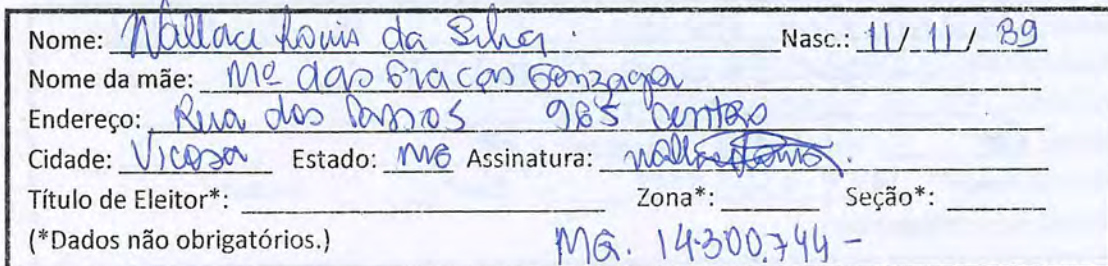 Nome: Wallace Louis da Silva. Nasc.: 11/11/89
Nome da mãe: Mª das Graças Gonzaga
Endereço: Rua dos Passos 985 Centro
Cidade: Viçosa Estado: MG Assinatura: Wallace Louis.
Título de Eleitor*: Zona*: Seção*:
(*Dados não obrigatórios.) MG. 14.300.744 -